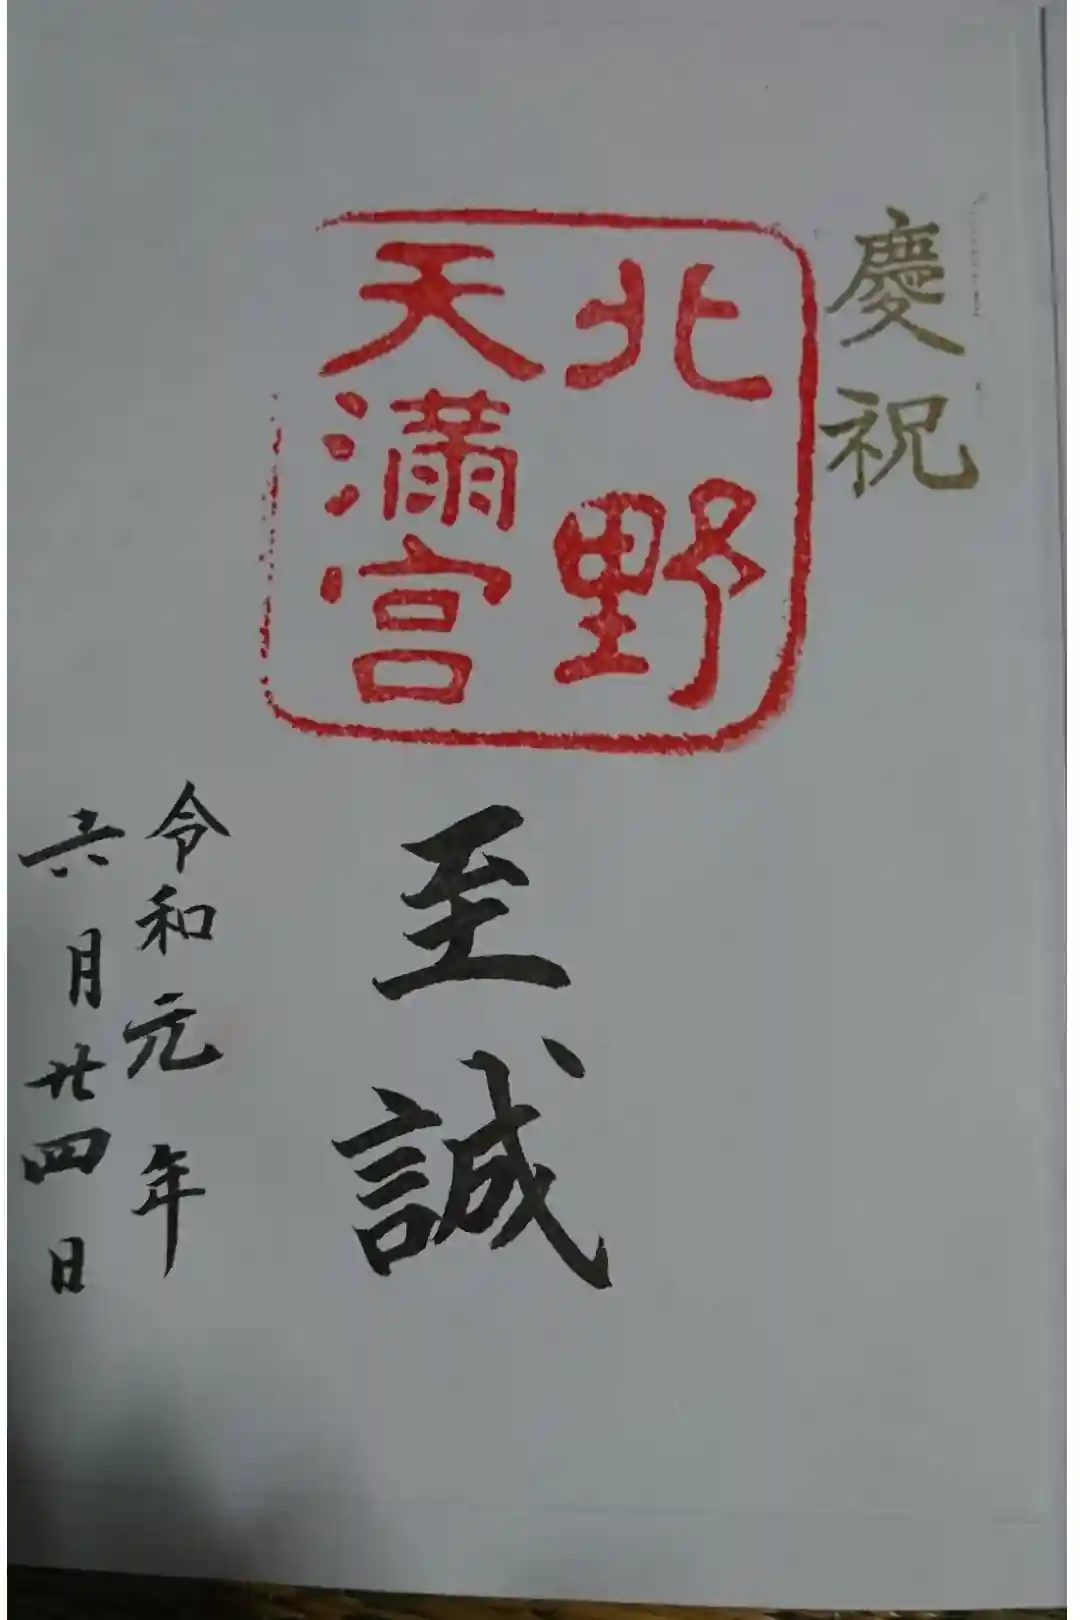 慶祝
北野
天満宮
至誠
令和元年
六月廿四日